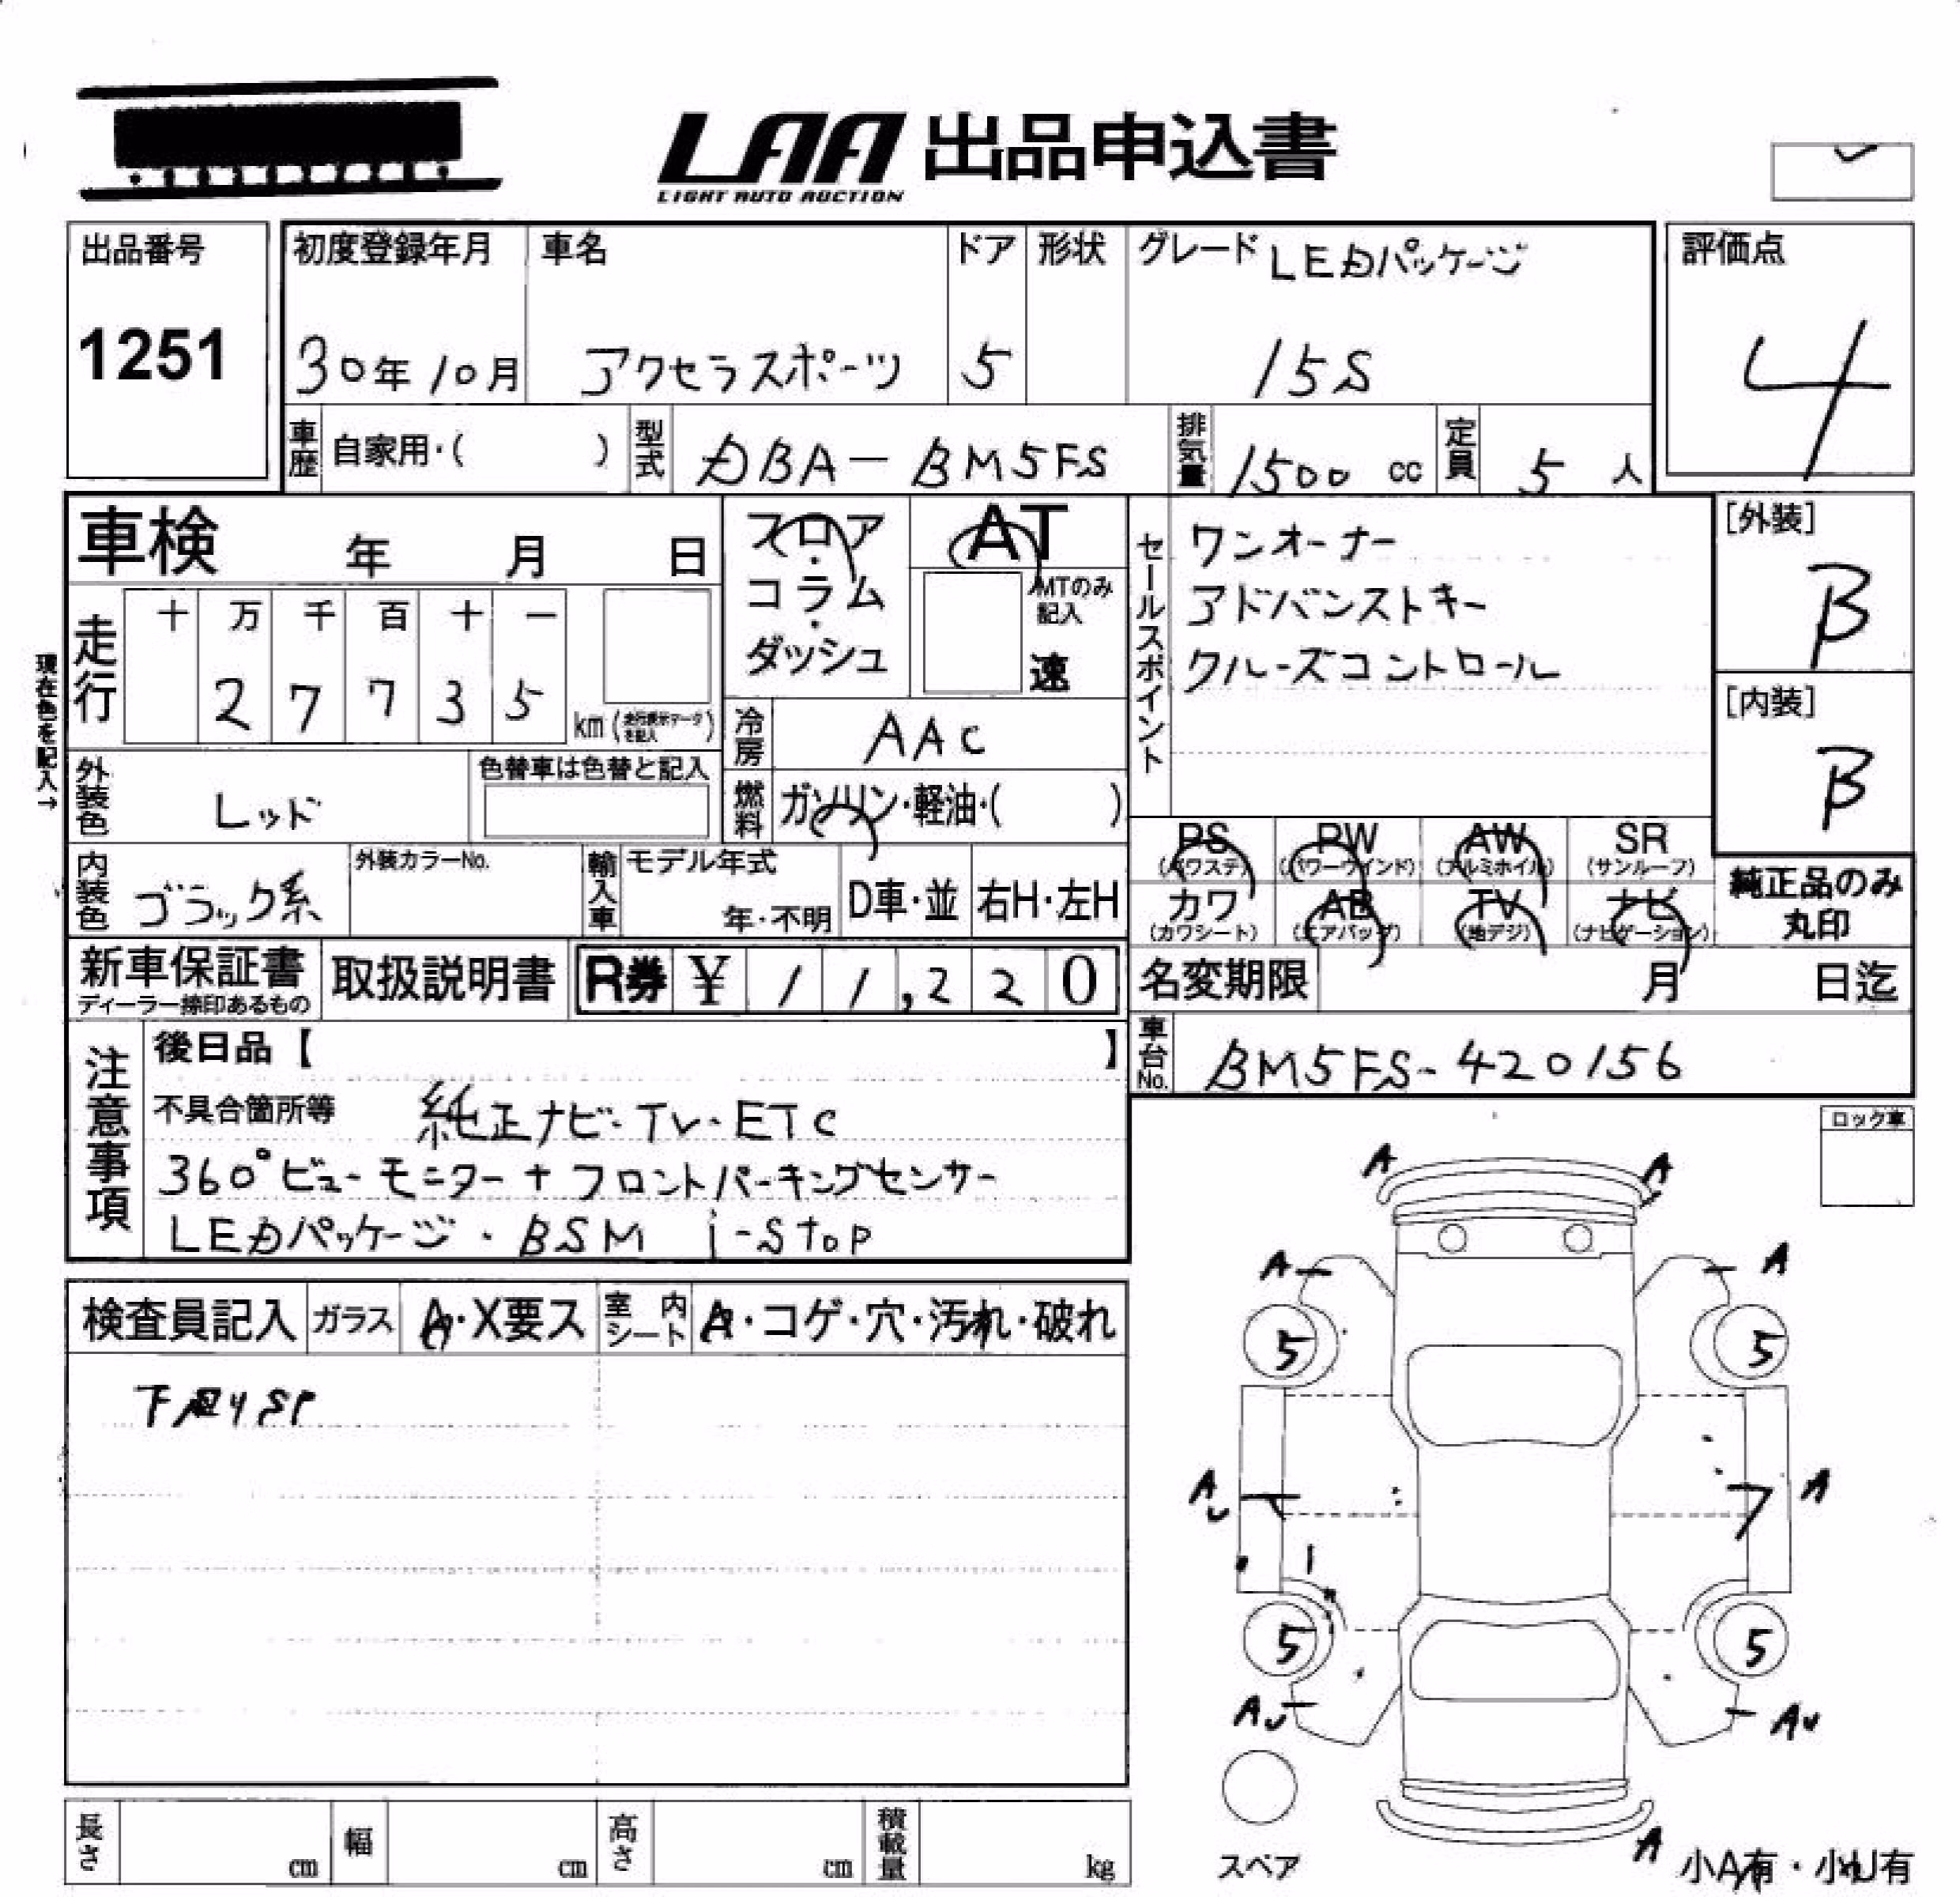 LAA 出品申込書
LIGHT AUTO AUCTION
出品番号
1251
初度登録年月
30年10月
車名
アクセラスポーツ
ドア
5
形状
グレード LEDパッケージ
15S
評価点
4
車歴 自家用・( )
型式 DBA-BM5FS
排気量 1500 cc
定員 5 人
車検 年 月 日
現在色を記入→
走行
十 万 千 百 十 一
2 7 7 3 5
km (走行表示データを記入)
フロア・
コラム・
ダッシュ
AT
MTのみ記入
速
冷房 AAC
燃料 ガソリン・軽油・( )
外装色 レッド
色替車は色替と記入
内装色 ブラック系
外装カラーNo.
輸入車 モデル年式
年・不明
D車・並 右H・左H
セールスポイント
ワンオーナー
アドバンストキー
クルーズコントロール
[外装]
B
[内装]
B
PS PW AW SR
(パワステ) (パワーウインド) (アルミホイル) (サンルーフ)
カワ AB TV ナビ
(カワシート) (エアバッグ) (地デジ) (ナビゲーション)
純正品のみ
丸印
新車保証書
ディーラー捺印あるもの
取扱説明書
R券 ¥ 11,220
名変期限 月 日迄
車台No. BM5FS-420156
注意事項
後日品【 】
不具合箇所等 純正ナビ・TV・ETC
360°ビューモニター+フロントパーキングセンサー
LEDパッケージ・BSM i-stop
ロック車
検査員記入 ガラス A・X要ス 室内シート A・コゲ・穴・汚れ・破れ
下廻りSP
A A
A A
5 5
AU A
5 5
AU AU
スペア
A
小A有・小U有
長さ cm 幅 cm 高さ cm 積載量 kg